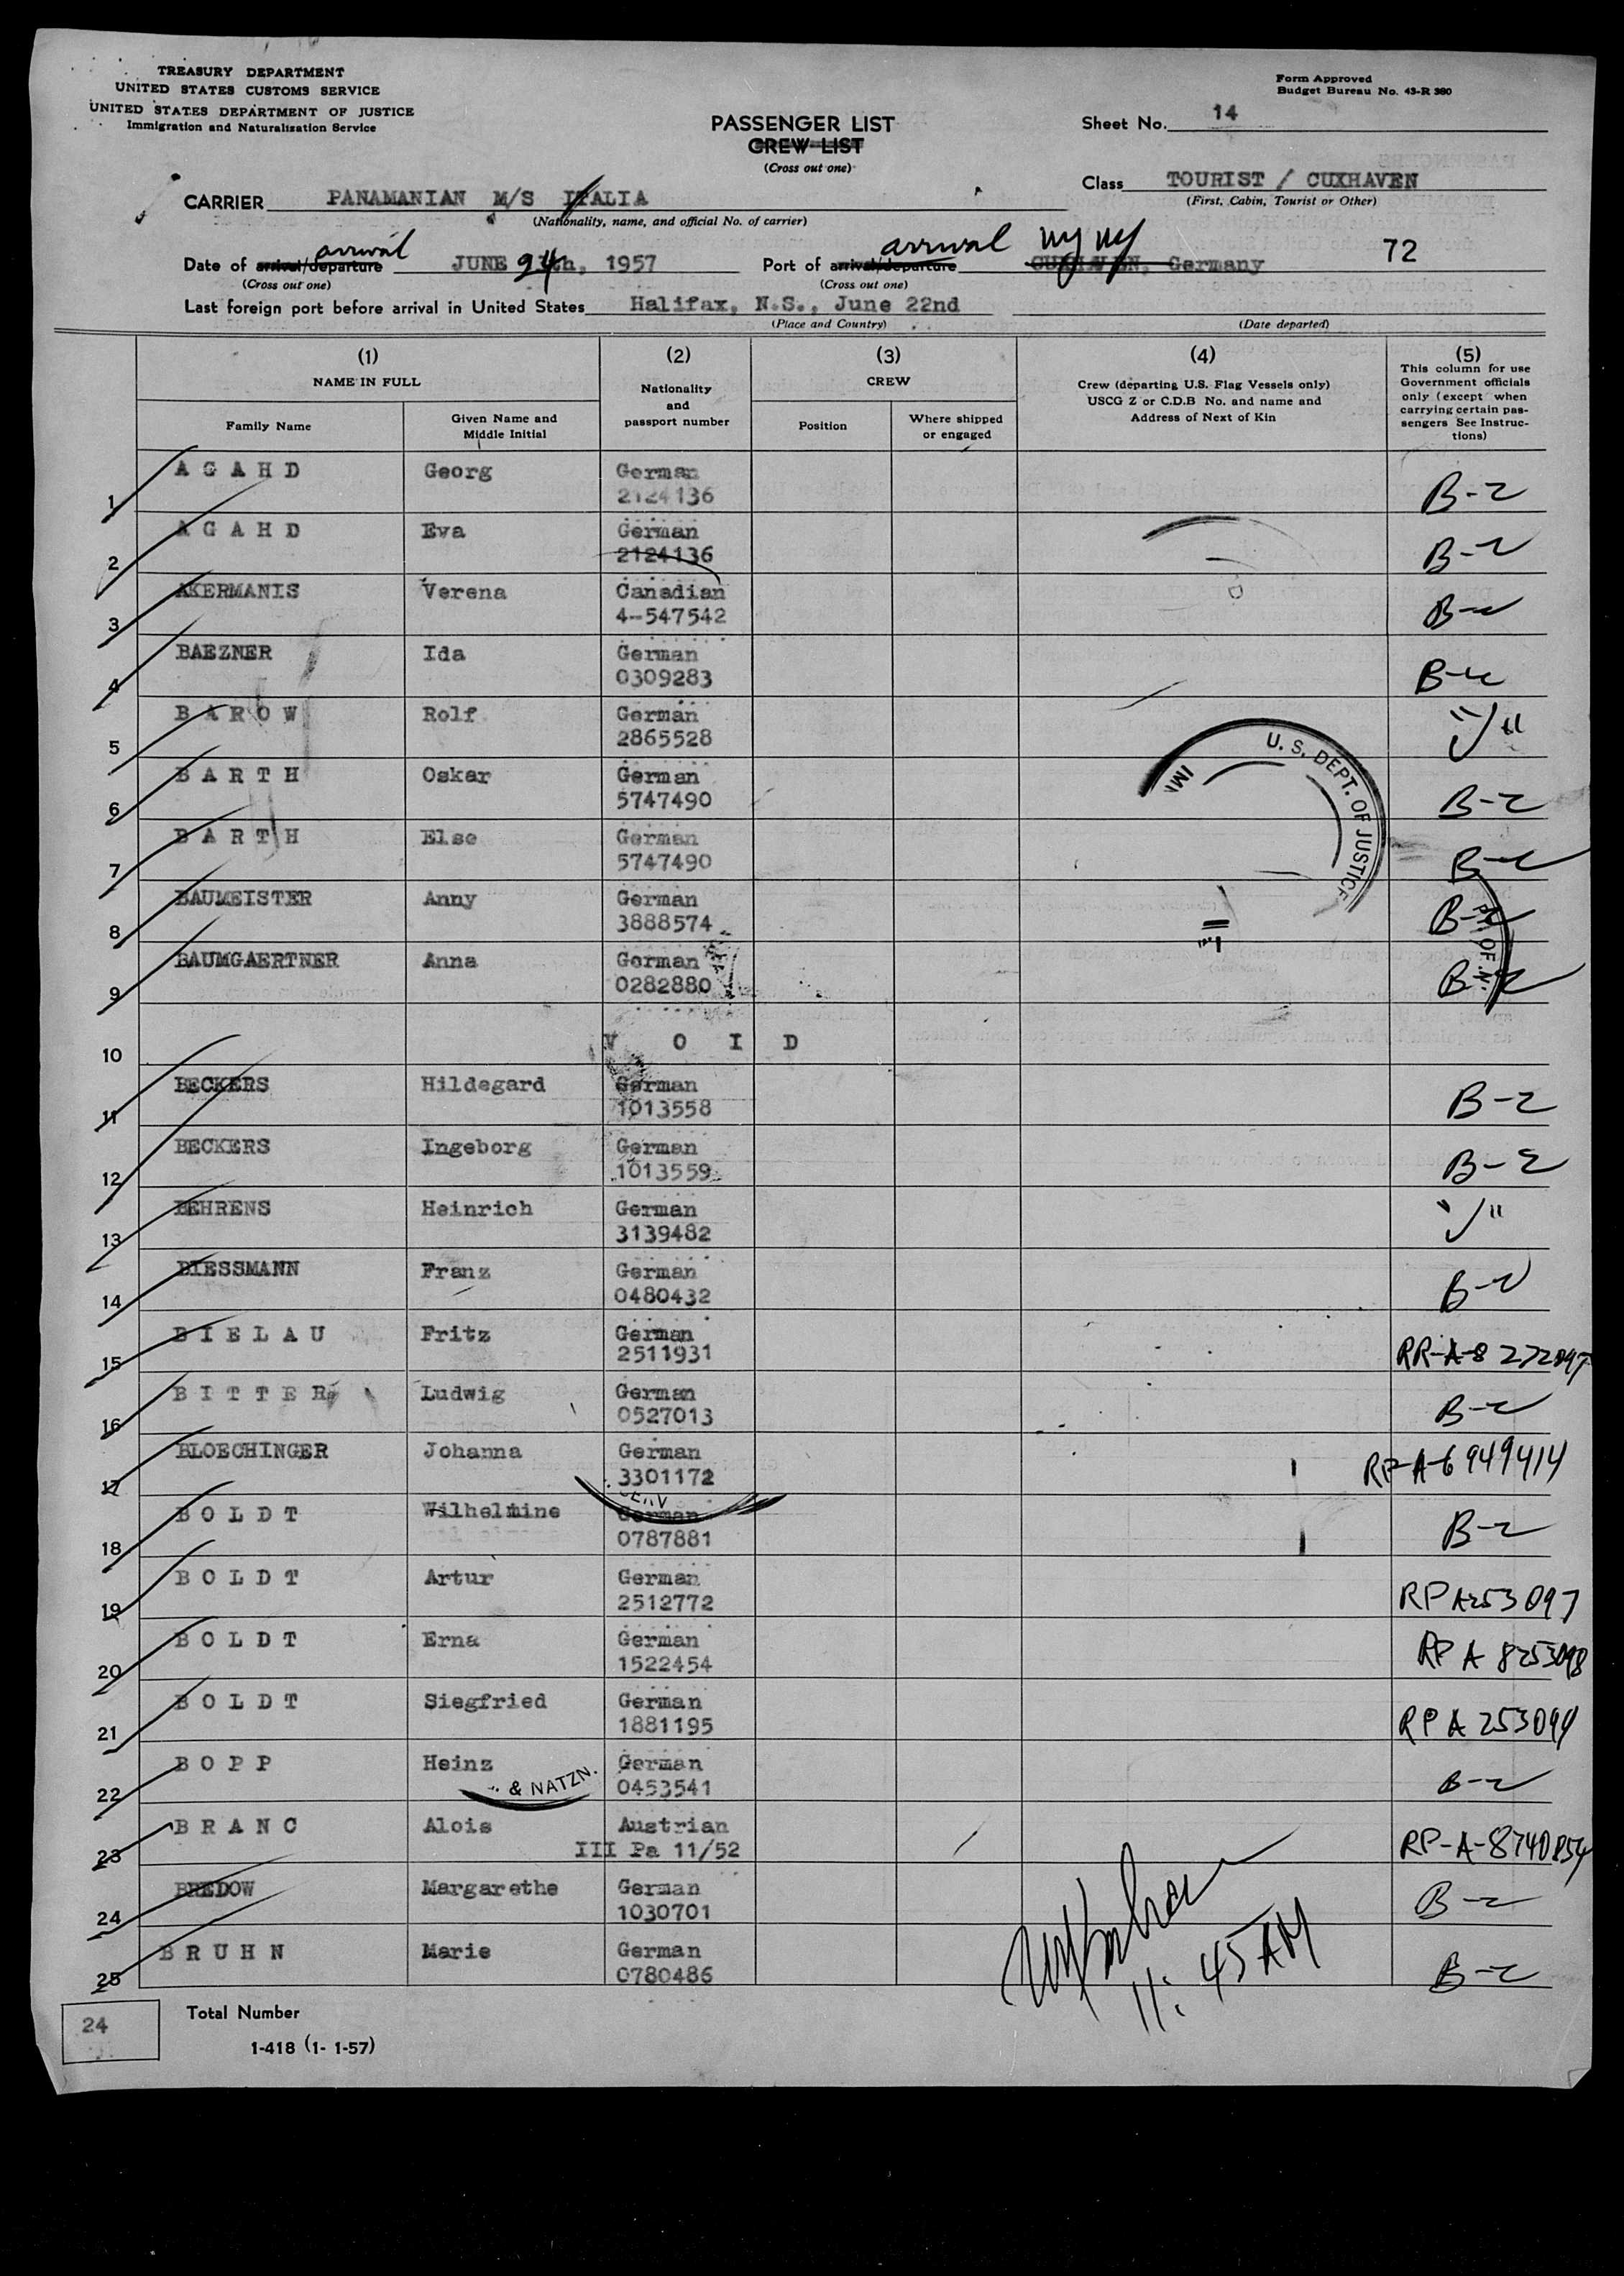 TREASURY DEPARTMENT
UNITED STATES CUSTOMS SERVICE
UNITED STATES DEPARTMENT OF JUSTICE
Immigration and Naturalization Service
Form Approved
Budget Bureau No. 43-R 380
PASSENGER LIST
CREW LIST
(Cross out one)
Sheet No. 14
CARRIER PANAMANIAN M/S ITALIA
(Nationality, name, and official No. of carrier)
Class TOURIST / CUXHAVEN
(First, Cabin, Tourist or Other)
arrival
Date of arrival/departure JUNE 24th, 1957
(Cross out one)
arrival NY NY
Port of arrival/departure CUXHAVEN, Germany 72
(Cross out one)
Last foreign port before arrival in United States Halifax, N.S., June 22nd
(Place and Country) (Date departed)
(1) (2) (3) (4) (5)
NAME IN FULL
Family Name
Given Name and Middle Initial
Nationality and passport number
CREW
Position
Where shipped or engaged
Crew (departing U.S. Flag Vessels only)
USCG Z or C.D.B No. and name and
Address of Next of Kin
This column for use
Government officials
only (except when
carrying certain pas-
sengers See Instruc-
tions)
1 AGAHD Georg German 2124136 B-2
2 AGAHD Eva German 2124136 B-2
3 AKERMANIS Verena Canadian 4-547542 B-2
4 BAEZNER Ida German 0309283 B-2
5 BAROW Rolf German 2865528 "J"
6 BARTH Oskar German 5747490 B-2
7 BARTH Else German 5747490 B-2
8 BAUMEISTER Anny German 3888574 B-2
9 BAUMGAERTNER Anna German 0282880 B-2
10 V O I D
11 BECKERS Hildegard German 1013558 B-2
12 BECKERS Ingeborg German 1013559 B-2
13 BEHRENS Heinrich German 3139482 "J"
14 BIESSMANN Franz German 0480432 B-2
15 BIELAU Fritz German 2511931 RP-A-8 272097
16 BITTER Ludwig German 0527013 B-2
17 BLOECHINGER Johanna German 3301172 RP-A-6 949414
18 BOLDT Wilhelmine German 0787881 B-2
19 BOLDT Artur German 2512772 RP A253097
20 BOLDT Erna German 1522454 RP A 8253098
21 BOLDT Siegfried German 1881195 RP A 253099
22 BOPP Heinz German 0453541 B-2
23 BRANC Alois Austrian III Pa 11/52 RP-A-8740854
24 BREDOW Margarethe German 1030701 B-2
25 BRUHN Marie German 0780486 B-2
U. S. DEPT. OF JUSTICE
IMI
SERV
& NATZN.
11:45 AM
24 Total Number
I-418 (1-1-57)